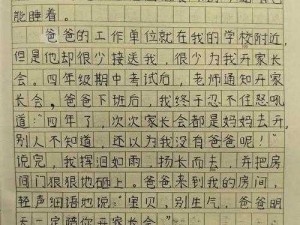 能睡着。
爸爸的工作单位就在我的学校附近,
但是他却很少接送我,很少为我开家
长会。四年级期中考试后,老师通知开家
长会,爸爸下班后,我终于忍不住怒吼
道:“四年了,次次家长会都是妈妈去开,
别人不知道,还以为我没有爸爸呢!”
说完,我挥泪如雨,扬长而去,并把房
间门狠狠地砸上。爸爸来到我的房间,
轻声细语地说:“宝贝,别生气,爸爸明
天一定陪你开家长会”